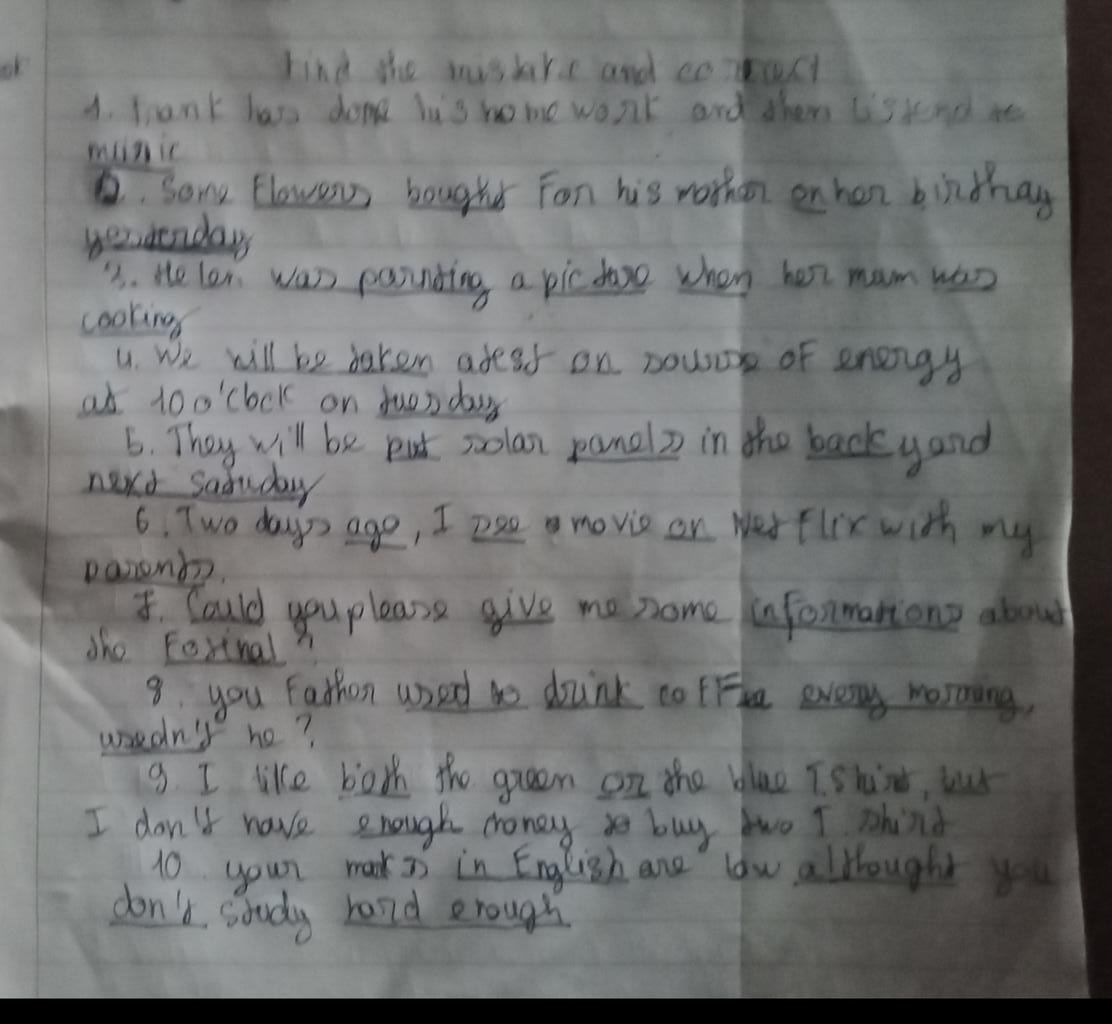 find the mistake and correct
1. Frank has done his homework and then listend to
music
2. Some flowers bought for his mother on her birthay
yesterday
3. Helen was painting a picture when her mam was
cooking
4. We will be taken a test on souwse of energy
at 10 o'clock on tuesday
5. They will be put solar panels in the back yard
next Satuday
6. Two days ago, I see a movie on Netflix with my
parents.
7. Could you please give me some informations about
the Festival?
8. you Father used to drink coffee every morning,
usedn't he?
9. I like both the green or the blue T.Shirt, but
I don't have enough money to buy two T shirt
10. your marks in English are low althought you
don't study hard enough